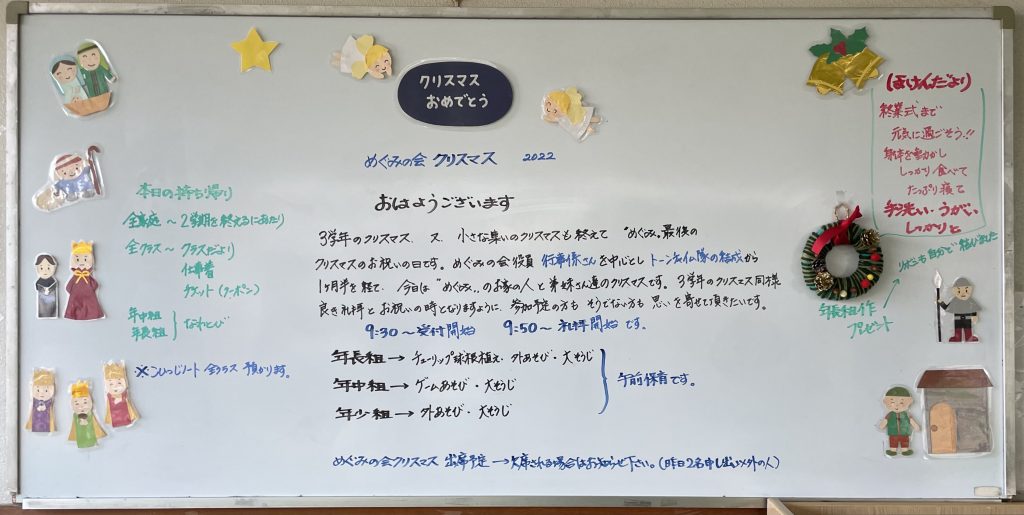 クリスマス
おめでとう
めぐみの会 クリスマス 2022
おはようございます
3学年のクリスマス、又、小さな集いのクリスマスも終えて "めぐみ"最後の
クリスマスのお祝いの日です。めぐみの会役員 行事係さんを中心とし トーンチャイム隊の結成から
1ヶ月半を経て、今日は "めぐみ"の お家の人と 弟妹さん達のクリスマスです。3学年のクリスマス同様
良き礼拝と お祝いの時となりますように、参加予定の方も そうでない方も 思いを寄せて頂きたいです。
9:30〜受付開始 9:50〜礼拝開始です。
年長組→チューリップ球根植え・外あそび・大そうじ
年中組→ゲームあそび・大そうじ
年少組→外あそび・大そうじ
午前保育です。
めぐみの会クリスマス 出席予定→欠席される場合はお知らせ下さい。(昨日2名申し出以外の人)
本日の持ち帰り
全家庭〜2学期を終えるにあたり
全クラス〜クラスだより
仕事着
チケット(クーポン)
年中組
年長組
なわとび
※こひつじノート 全クラス 預かります。
ほけんだより
終業式まで
元気に過ごそう!!
身体を動かし
しっかり食べて
たっぷり寝て
手洗い・うがい、
しっかりと
リボンも自分で結びました
年長組作
プレゼント